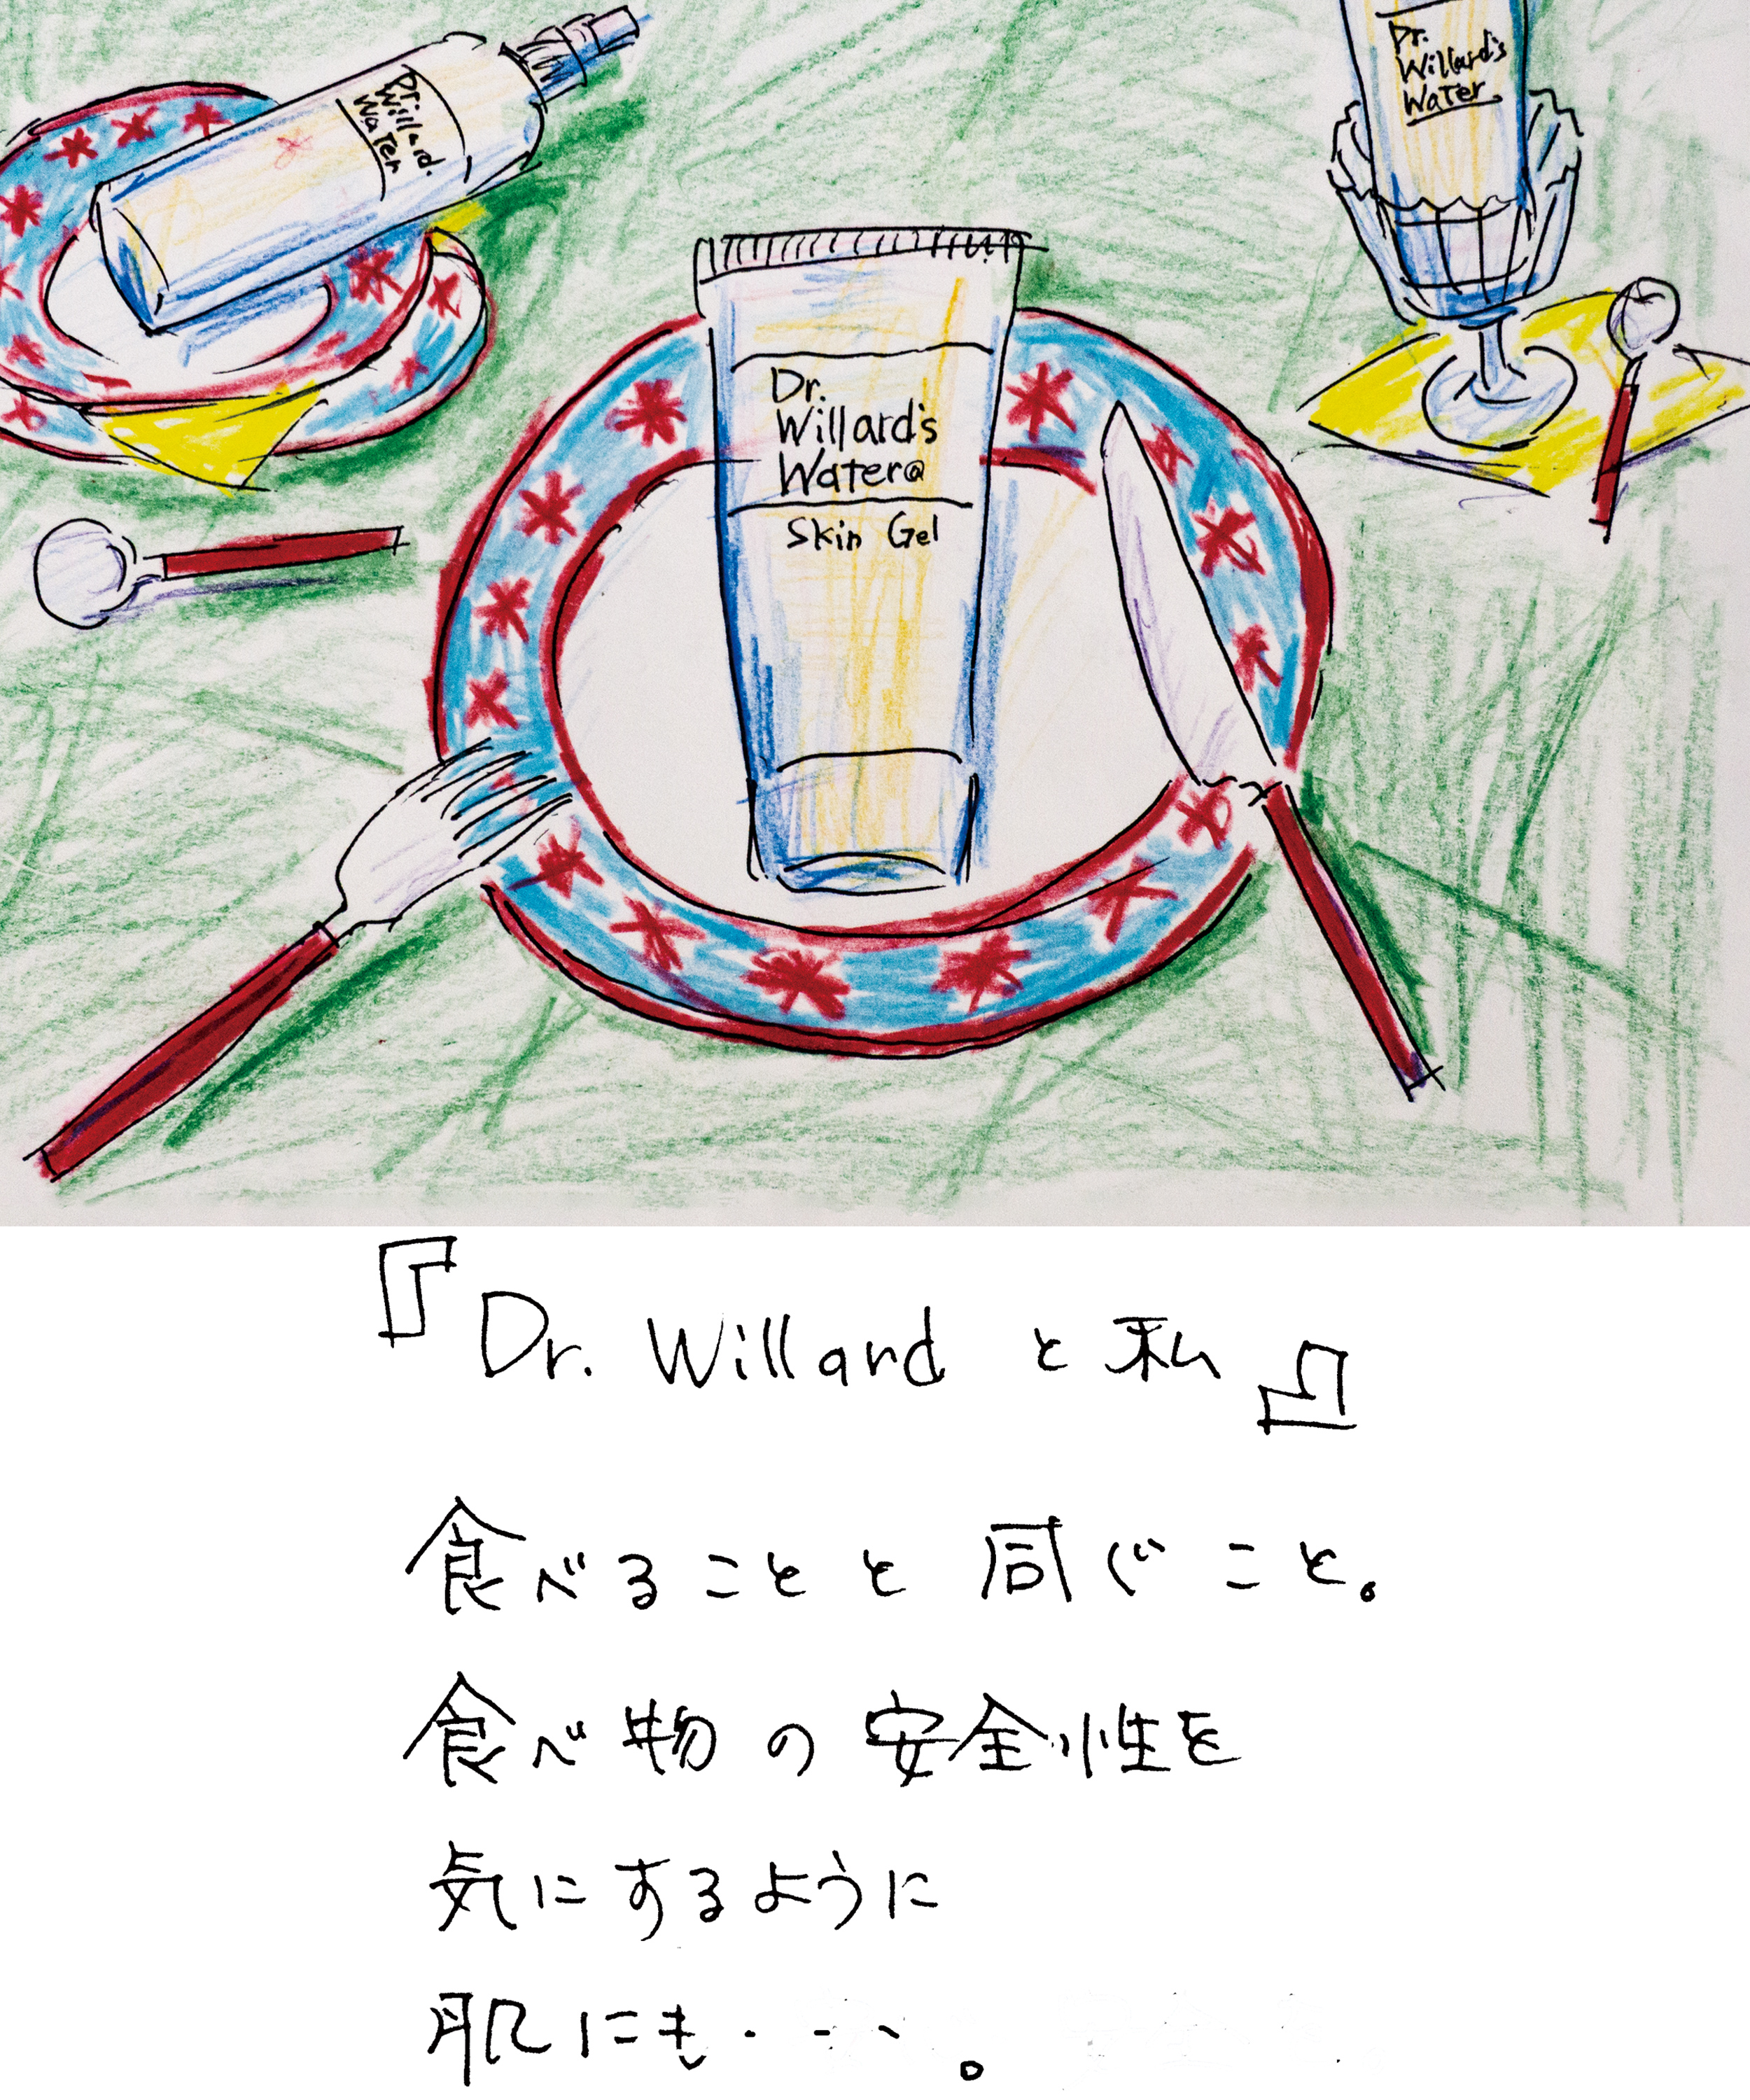 Dr.
Willard.
Water
Dr.
Willard's
Water
Dr.
Willard's
Water@
Skin Gel
『Dr. Willard と私』
食べることと同ぐこと。
食べ物の安全性を
気にするように
肌にも・・・。